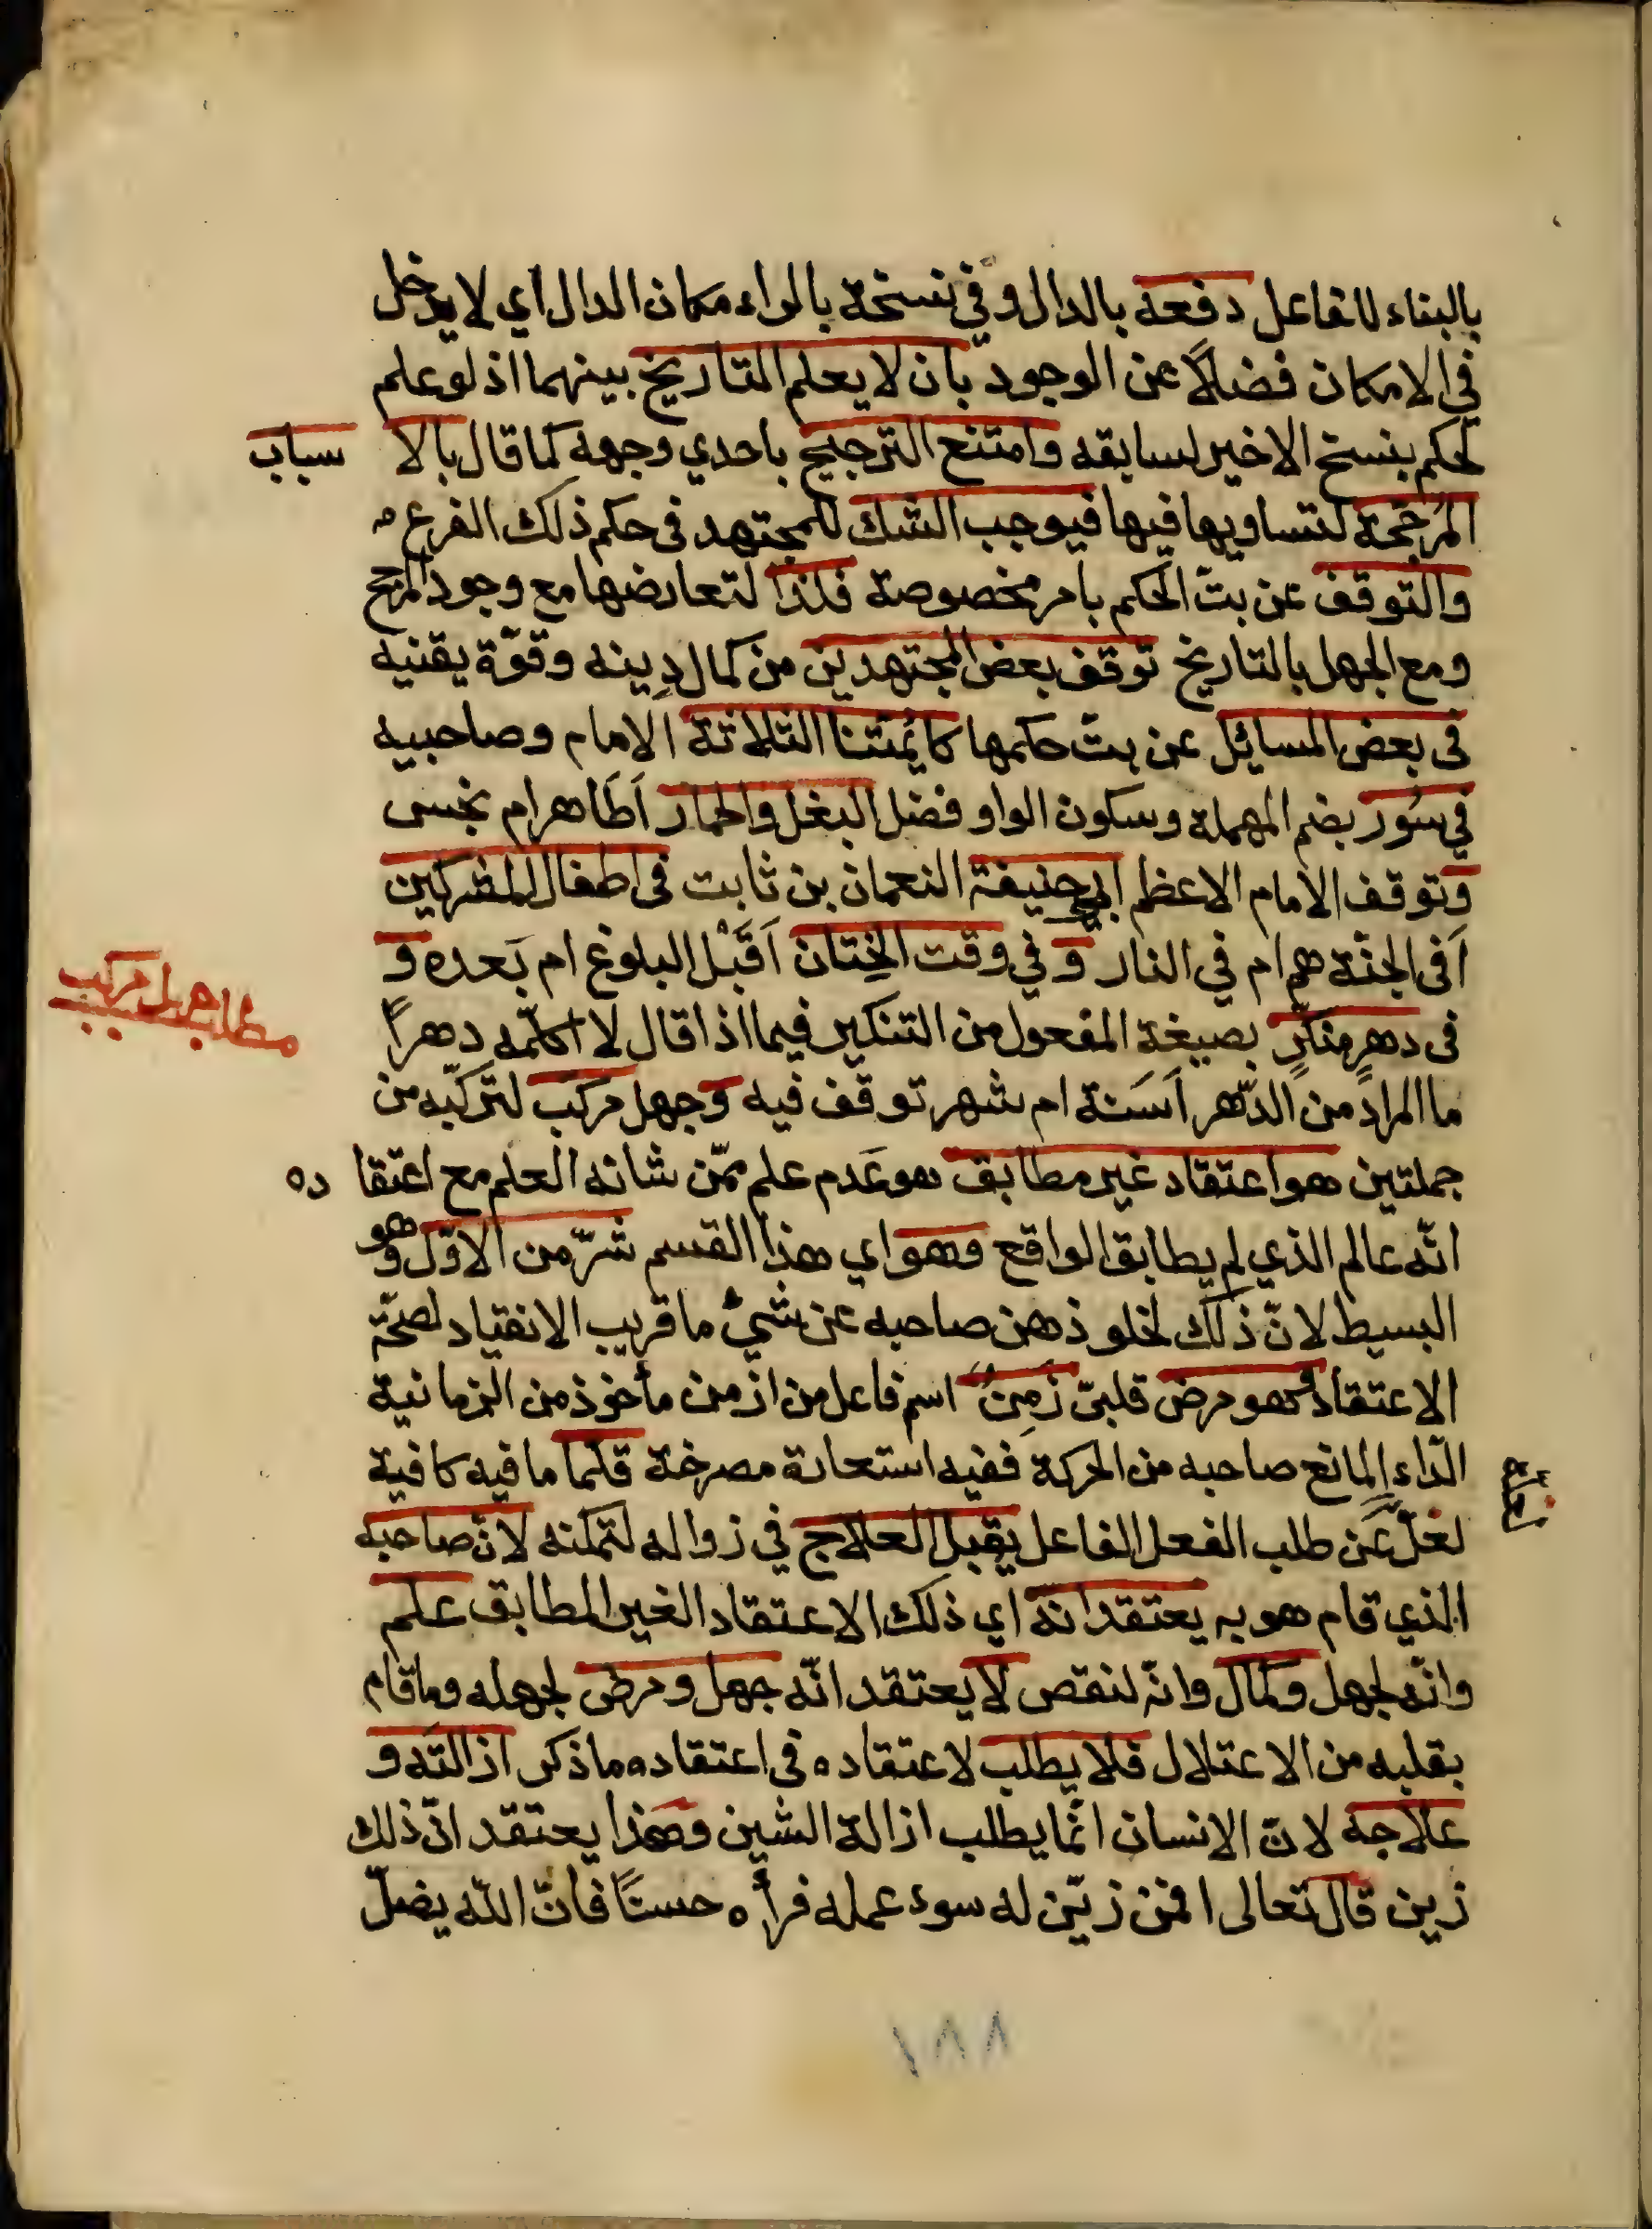 بالبناء للفاعل دفعه بالدال وفي نسخة بالراء مكان الدال اي لا يدخل
في الامكان فضلاً عن الوجود بان لا يعلم التاريخ بينهما اذ لو علم
لحكم بنسخ الاخير لسابقه وامتنع الترجيح باحدي وجهه كما قال بالا سباب
المُرَجّحة لتساويها فيها فيوجب الشك للمجتهد فى حكم ذلك الفرع
والتوقف عن بتّ الحكم بامر مخصوصة فلذا لتعارضها مع وجود المرجح
ومع الجهل بالتاريخ توقف بعض المجتهدين من كمال دينه وقوّة يقنيه
فى بعض المسائل عن بتّ حكمها كائمتنا الثلاثة الامام وصاحبيه
في سُور بضم المهملة وسكون الواو فضل البغل والحمار اَطَاهر ام نجس
وتوقف الامام الاعظم ابي حنيفة النعمان بن ثابت فى اطفال المشركين
اَفى الجنّة هم ام في النار وَ في وقت الخِتان اَقَبْل البلوغ ام بَعده و
فى دهرٍ منكّرٍ بصيغة المفعول من التنكير فيما اذا قال لا اكلّمه دهراً
ما المراد من الدّهر اَسَنة ام شهر توقف فيه وَجهل مركب لتركّبه من
مطلب جهل مركب
جملتين هو اعتقاد غير مطابق هو عَدم علم ممّن شانه العلم مع اعتقا ده
انّه عالم الذي لم يطابق الواقع وهو اي هذا القسم شرّ من الاوّل وهو
البسيط لانّ ذلك لخلو ذهن صاحبه عن شيء ما قريب الانقياد لصحّة
الاعتقاد فهو مرض قلبىّ زَمِنٌ اسم فاعل من ازمن مأخوذ من الزمانية
الدّاء المانع صاحبه من الحركة ففيه استعارة مصرخة قلّما ما فيه كافية
لغلّ عَن طلب الفعل الفاعل يقبل العلاج في زواله لتمكنه لانّ صاحبه
الذي قام هو به يعتقد انّه اي ذلك الاعتقاد الغير المطابق علم
وانّه لجهل وكمال وانّه لنقص لا يعتقد انّه جهل ومرض لجهله وما قام
بقلبه من الاعتلال فلا يطلب لاعتقاده فى اعتقاده ما ذكر ازالته و
علاجه لانّ الانسان انّما يطلب ازالة الشين وهذا يعتقد انّ ذلك
زين قال تعالى افمن زيّن له سوء عمله فرأه حسنًا فانّ اللّه يضلّ
١٨٨